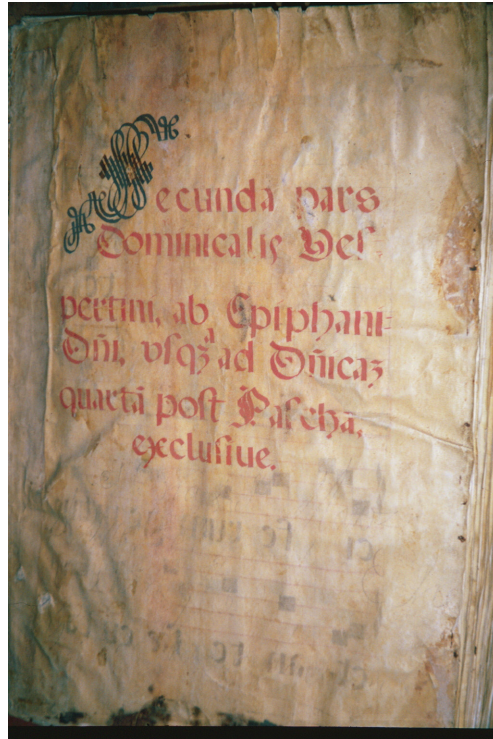 Secunda pars
Dominicalis Ves-
pertini, ab Epiphani=
Dñi, vsqꝫ ad Dñicaꝫ
quartā post Paschā,
exclusiue.